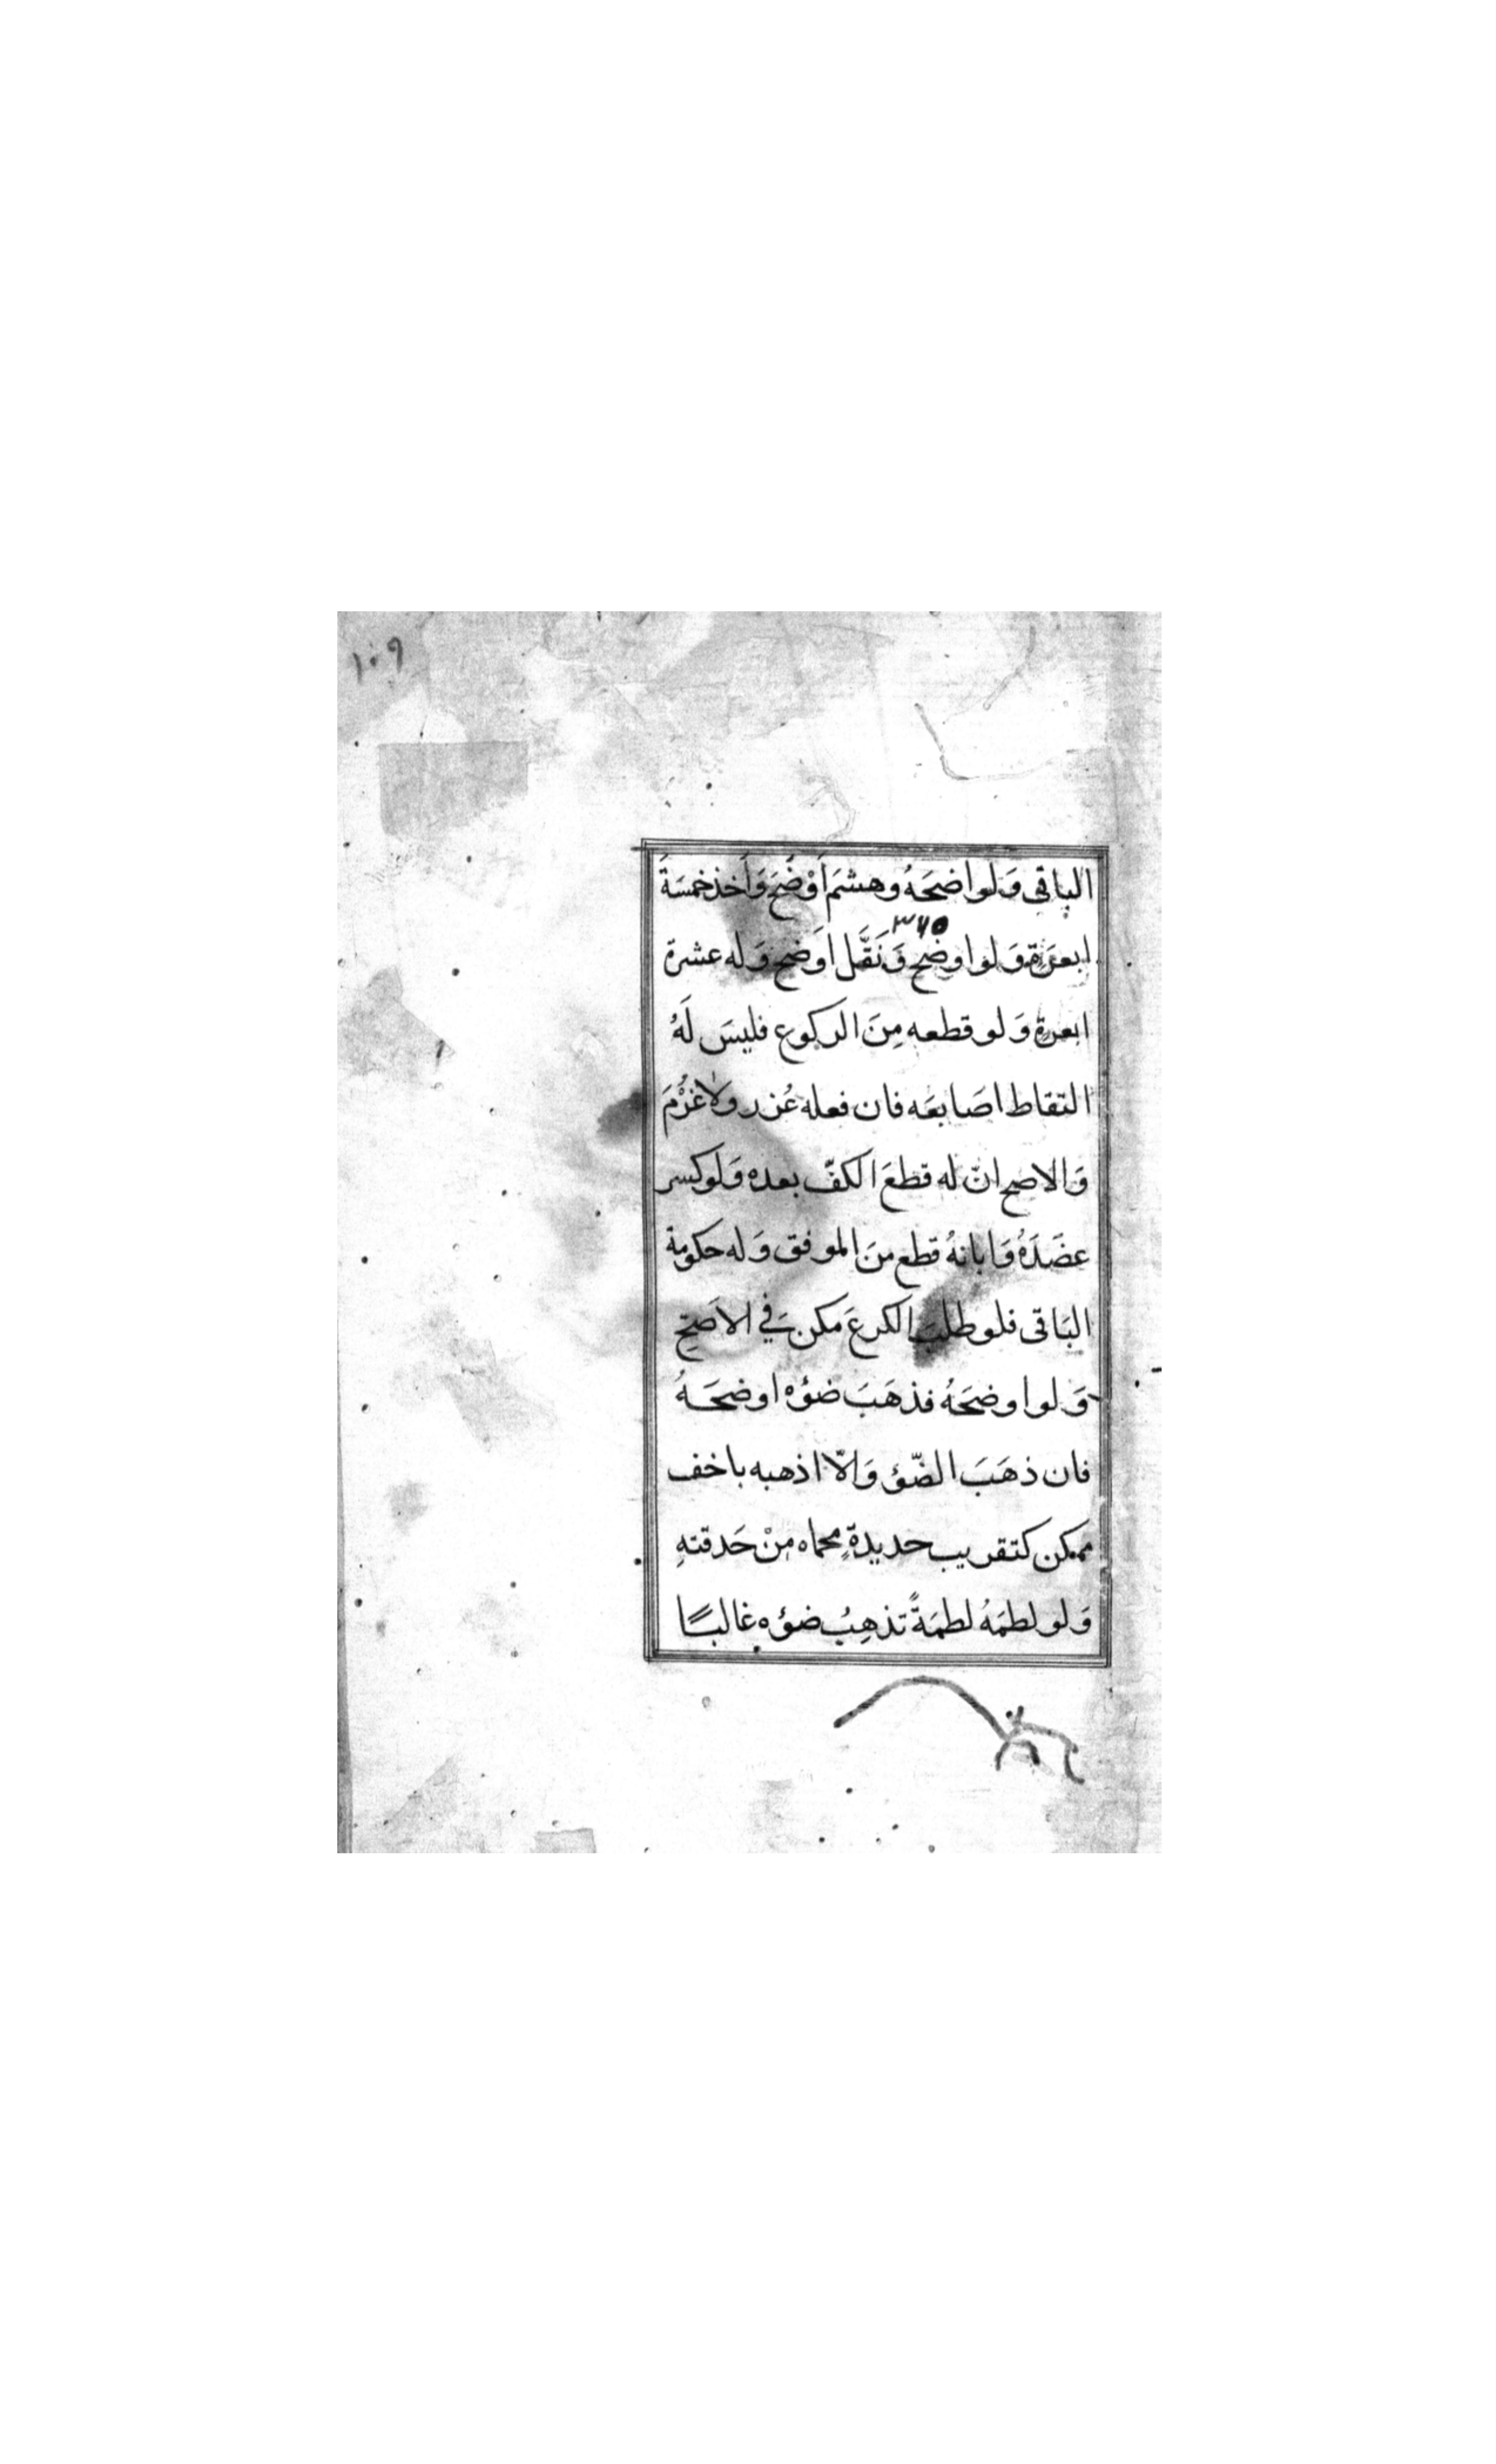 ١٠٩
الباقى وَلواضحَهُ وهشمَ اَوْضَحَ وَاَخذ خمسَةَ
٣٦٥
ابعرَة وَلواوضح وَنَقَّل اوَضح وَله عشرة
ابعرة وَلو قطعه مِنَ الركوع فليسَ لَهُ
التقاط اصَابعَه فان فعله عُزر ولاَ غُرْمَ
وَالاصح انّ له قطعَ الكفّ بعده وَلو كسر
عضَدَهُ وَابانهُ قطع منَ الموفق وَله حكومة
البَاقى فلو طلبَ الكرعَ مكن فِي الاَصَحِّ
وَلو اوضحَهُ فذهَبَ ضؤه اوضحَهُ
فان ذهَبَ الضّؤ وَالّا اذهبه باخف
ممكن كتقريب حديدةٍ محماه مِنْ حَدقتهِ
وَلو لطمَهُ لطمَةً تذهِبُ ضؤه غالبًا